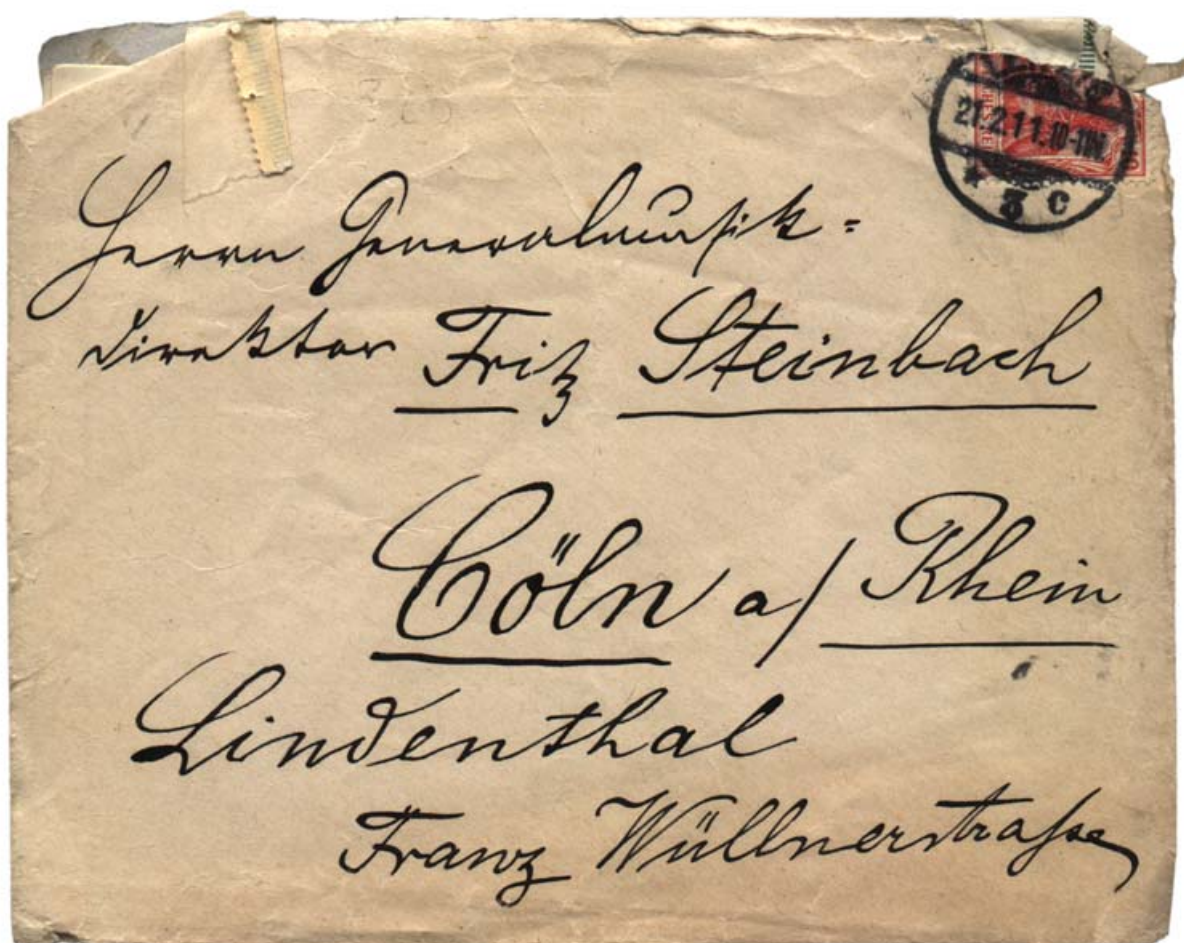 21.2.11.10-11N.
3 c
Herrn Generalmusik=
direktor Fritz Steinbach
Cöln a/ Rhein
Lindenthal
Franz Wüllnerstraße